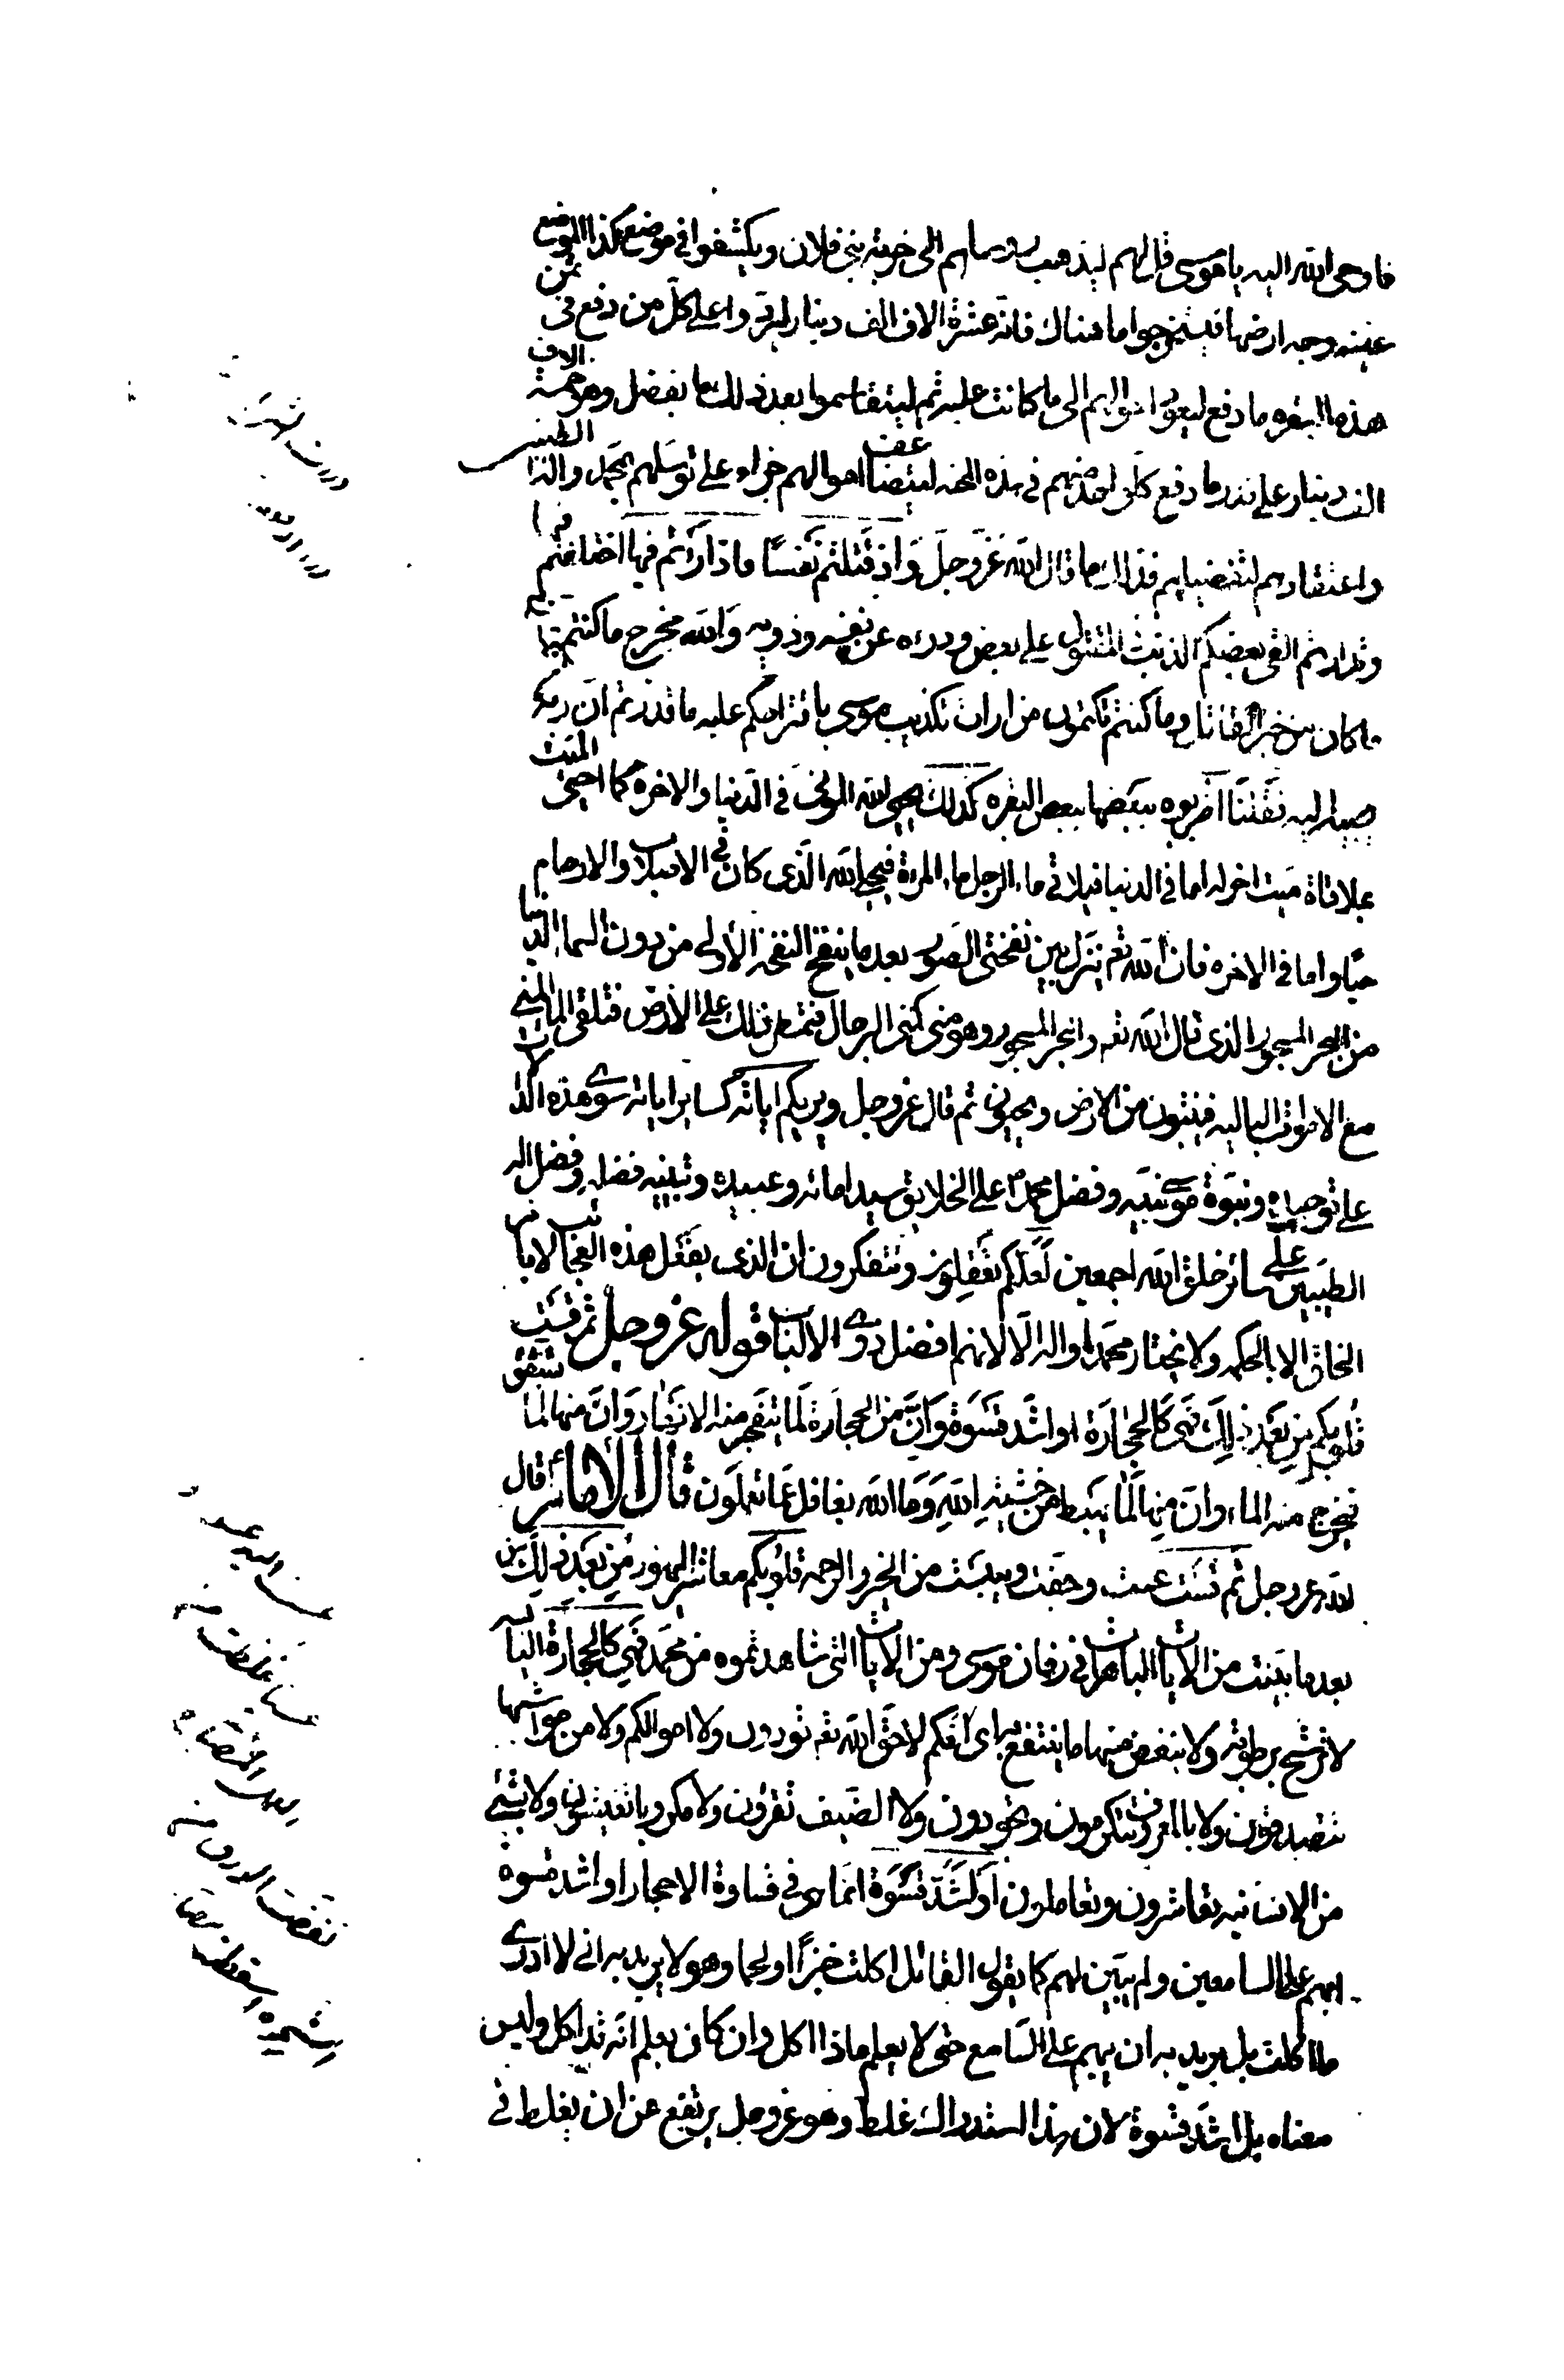 فاوحى الله اليه يا موسى قل لهم ليذهب رؤساهم الى خربة بنى فلان ويكشفوا فى موضع كذا الموضع
عينه وجه ارضها فيستخرجوا ما هناك فانه عشرة الاف الف دينار ليردوا على كل من دفع فى ثمن
هذه البقره ما دفع لتعود احوالهم الى ما كانت عليه ثم ليتقاسموا بعد ذلك ما يفضل وهو خمسة الاف
الف دينار على قدر ما دفع كل واحد منهم فى هذه المحنه ليتضاعف اموالهم جزاء على توسلهم بمحمد واله الطيبين
واعتقادهم لتفضيلهم فذلك ما قال الله عز وجل وَاذ قَتلتم نَفسًا فادّارأتم فيها اختلفتم فيها
وتدارأتم القى بعضكم الذنب المقتول على بعض ودرءه عن نفسه وذويه وَالله مخرج ما كنتم تكتمون
ما كان من خبر القاتل وما كنتم تكتمون من ارادت تكذيب موسى باقتراحكم عليه ما قدرتم ان ربه
يجيبه اليه فَقلنا اضربوه ببَعضها ببعض البقره كذلك يحيى الله الموتى فى الدنيا والاخرة كما احيى الميت
بملاقاة ميت اخر له اما فى الدنيا فيلاقى ماء الرجل ماء المرءة فيحيى الله الذى كان فى الاصلاب والارحام
حيا واما فى الاخره فان الله تع ينزل بين نفختى الصور بعد ما ينفخ النفخة الاولى من دون السماء الدنيا
من البحر المسجور الذى قال الله تع والبحر المسجور وهو منى كمنى الرجال فتمطر ذلك على الارض فتلقى الماء المنى
مع الاموات البالية فينبتون من الارض ويحيون ثم قال عز وجل ويريكم اياته كساير اياته سوى هذه الدلالات
على توحيده ونبوة موسى نبيه وفضل محمد على الخلايق سيد امائه وعبيده وتبيينه فضله وفضل اله
الطيبين على سائر خلق الله اجمعين لَعلكم تعقلون وتتفكرون ان الذى يفعل هذه العجائب لا يامر
الخلق الا بالحكمه ولا يختار محمدا واله الا لانهم افضل ذوى الالباب قوله عز وجل ثم قست
قلوبكم مِن بَعد ذلِك فهى كَالحجارة او اشد قَسوة وَانّ من الحجارة لَما يتفجر منه الانهار وَانّ منها لَما يشقق
فيخرج منه الماء وان منها لَما يهبط من خشية الله وَمَا الله بغافل عما تعملون قال الامام قال
الله عز وجل ثم قست عست وجفت ويبست من الخير والرحمة قلوبكم معاشر اليهود من بعد ذلك من
بعد ما بينت من الايات الباهرات فى زمان موسى ومن الايات التى شاهدتموه من محمد فهى كالحجارة اليابسه
لا ترشح برطوبة ولا ينفض منها ما ينتفع به اى انكم لا حق الله تع تودون ولا اموالكم ولا من مواشيها
تتصدقون ولا بالمعروف تتكرمون وتجودون ولا الضيف تقرون ولا مكروبا تغيثون ولا بشىء
من الانسانيه تعاشرون وتعاملون اَو اشدّ قسوة انما هى فى قساوة الاحجار او اشد قسوة
ابهم على السامعين ولم يبين لهم كما يقول القائل اكلت خبزًا او لحما وهو لا يريد به انى لا ادرى
ما اكلت بل يريد به ان يبهم على السامع حتى لا يعلم ماذا اكل وان كان يعلم انه قد اكل وليس
معناه بل اشد قسوة لان هذا استدراك غلط وهو عز وجل يرتفع عن ان يغلط فى